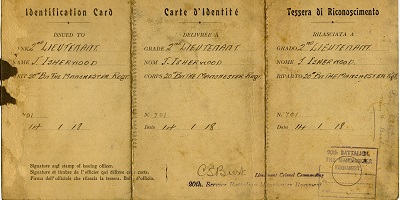 Identification Card
ISSUED TO
RANK 2nd LIEUTENANT.
NAME J. ISHERWOOD
UNIT 20th Bn THE MANCHESTER Regt.
1st 1 18
Signature and stamp of issuing officer.
Signature et timbre de l'officier qui délivre cette carte.
Firma dell'ufficiale che rilascia la tessera. Bollo d'ufficio.
Carte d'Identité
DÉLIVRÉE À
GRADE 2nd LIEUTENANT.
NOM J. ISHERWOOD
CORPS 20th Bn THE MANCHESTER Regt.
Date 1st 1 18
Lieutenant Colonel Commanding
20th. Service Battalion Manchester Regiment
Tessera di Riconoscimento
RILASCIATA A
GRADO 2nd LIEUTENANT.
NOME J. ISHERWOOD
RIPARTO 20th Bn THE MANCHESTER Regt.
Date 1st 1 18
20TH BATTALION,
THE MANCHESTER
REGIMENT